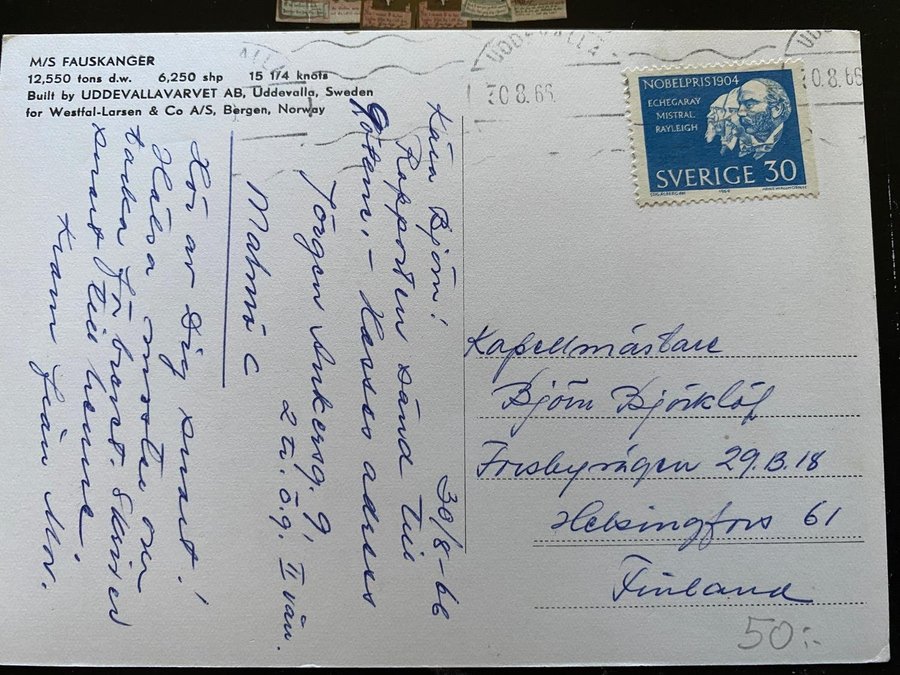 M/S FAUSKANGER
12,550 tons d.w. 6,250 shp 15 1/4 knots
Built by UDDEVALLAVARVET AB, Uddevalla, Sweden
for Westfal-Larsen & Co A/S, Bergen, Norway
UDDEVALLA
30.8.66
NOBELPRIS 1904
ECHEGARAY
MISTRAL
RAYLEIGH
SVERIGE 30
1964
30/8-66
Kära Björn!
Rapporten sänd till
adress
Jörgen Ankersg. 9
2 tr. ö.g. II vån.
Malmö C
Hör av Dig snart!
Hälsa
tacka för brevet. Skriver
snart till henne.
Kram från Mor.
Kapellmästare
Björn Björklöf
Forsbyvägen 29.B.18
Helsingfors 61
Finland
50:-